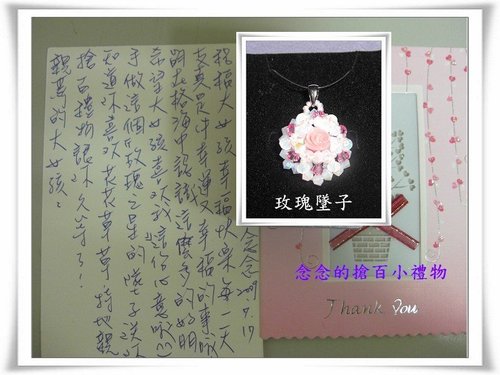 親愛的大女孩:
搶百禮物讓你久等了!
知道你喜歡花花草草 特地親
手做這個玫瑰之星的墜子送你
希望大女孩喜歡我這份心意
在格海中認識這麼多的好朋
友真是幸運又幸福的事
祝福大女孩幸福快樂每一天
念念
2009.7.17
玫瑰墜子
念念的搶百小禮物
Thank You